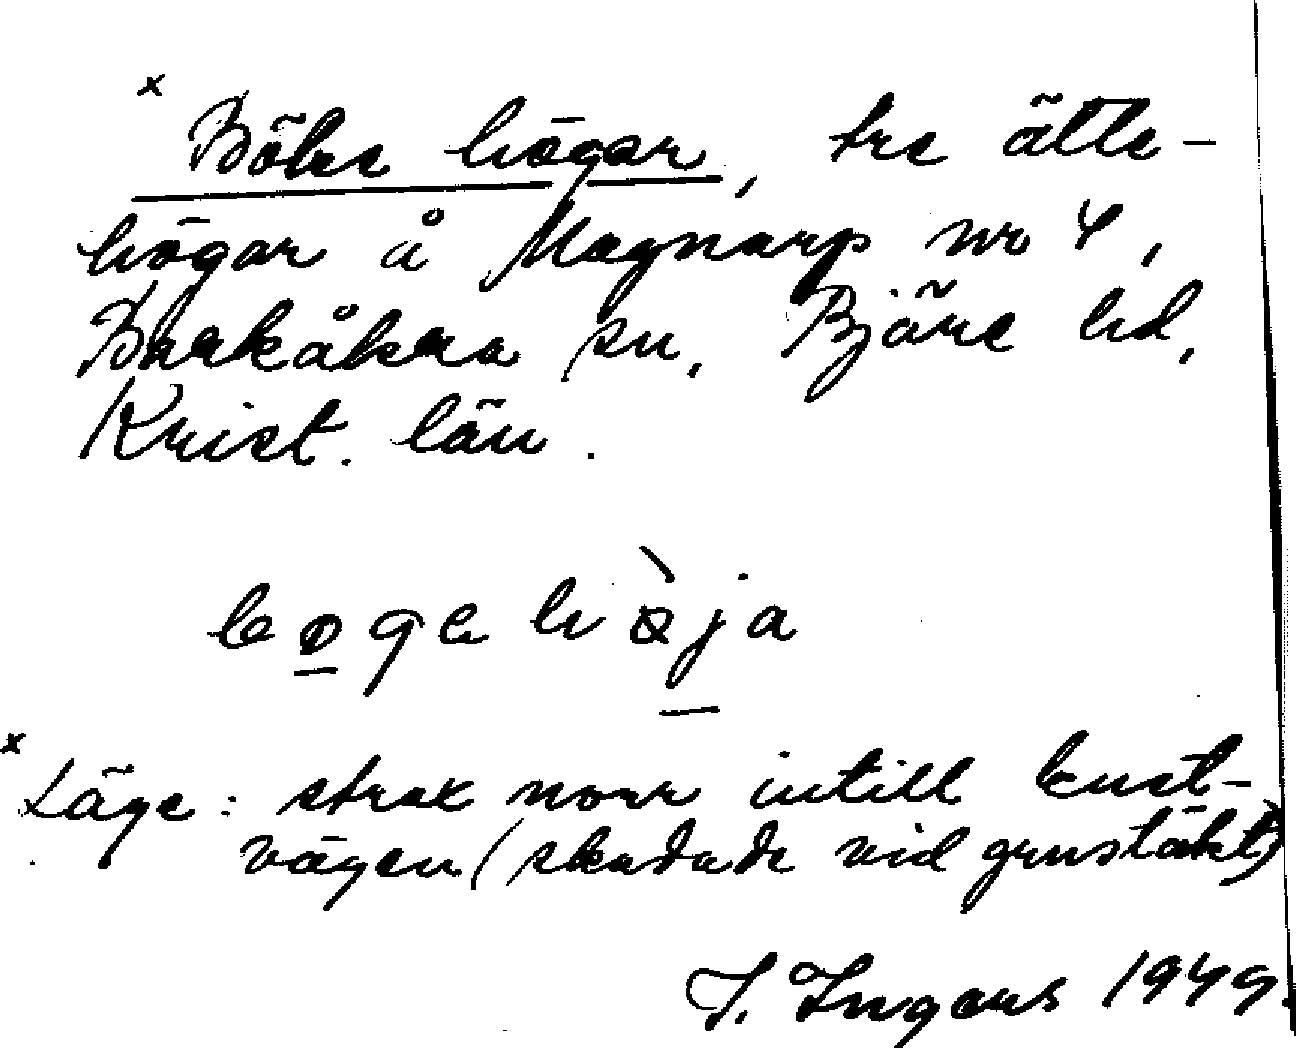 x Böke högar, tre ätte-
högar å Magnarp nr 4,
Barkåkra sn, Bjäre hd,
Krist. län.
x Läge: strax norr intill kust-
vägen (skadade vid grustäkt)
I. Ingers 1949.